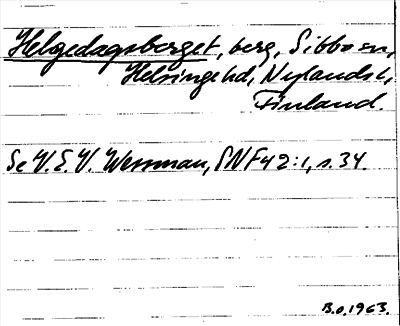 Helgedagsberget, berg, Sibbo sn,
Helsinge hd, Nylands l,
Finland.
Se V.E.V. Wessman, SNF 42:1, s. 34.
B.O. 1963.